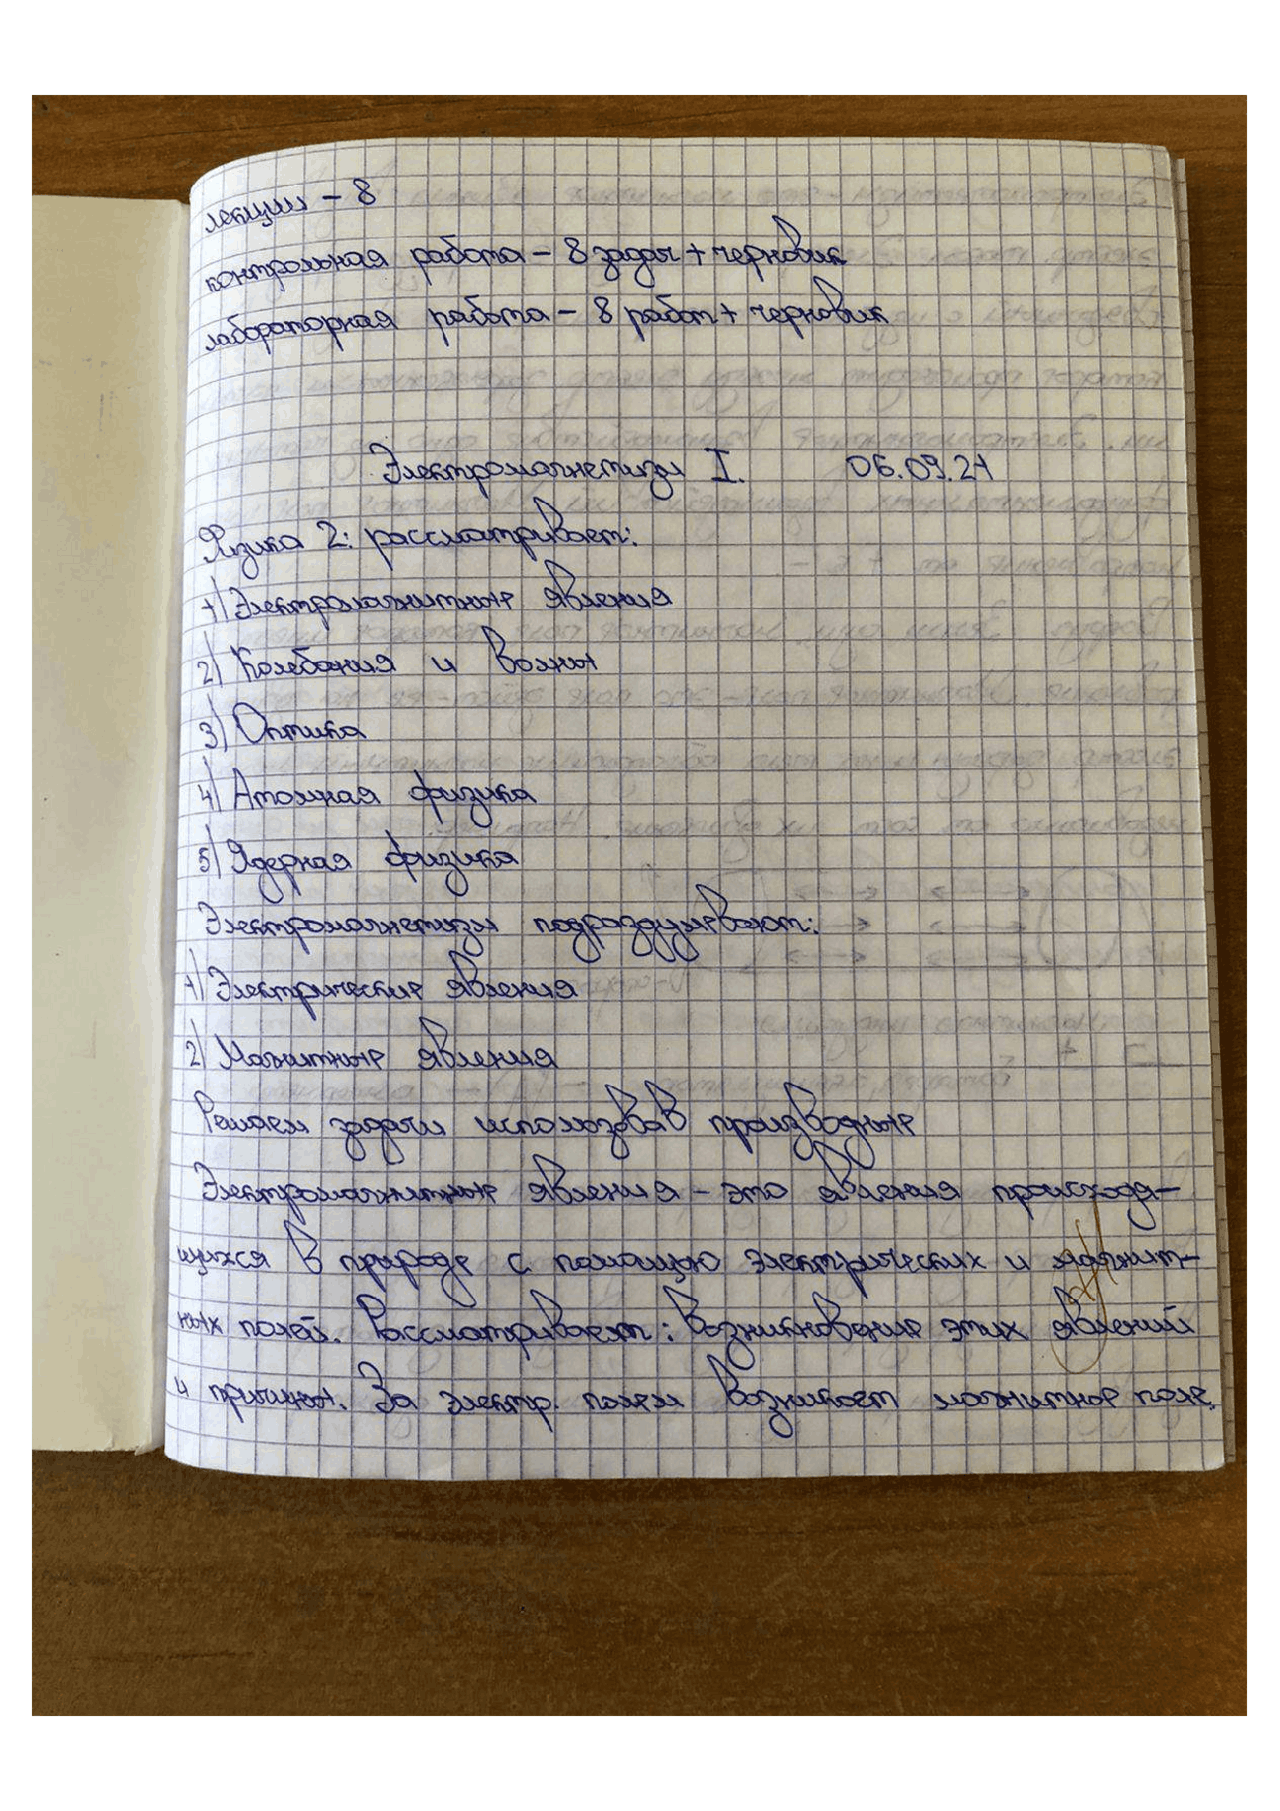 лекции – 8
контрольная работа – 8 задач + черновик
лабораторная работа – 8 работ + черновик
Электромагнетизм I. 06.09.21
Физика 2: рассматривает:
1) Электромагнитные явления
2) Колебания и волны
3) Оптика
4) Атомная физика
5) Ядерная физика
Электромагнетизм подраздумевают:
1) Электрические явления
2) Магнитные явления
Решаем задачи использовав производные
Электромагнитные явления – это явления происходя-
щихся в природе с помощью электрических и магнит-
ных полей. Рассматривает: возникновение этих явлений
и причины. За электр. полем возникает магнитное поле.